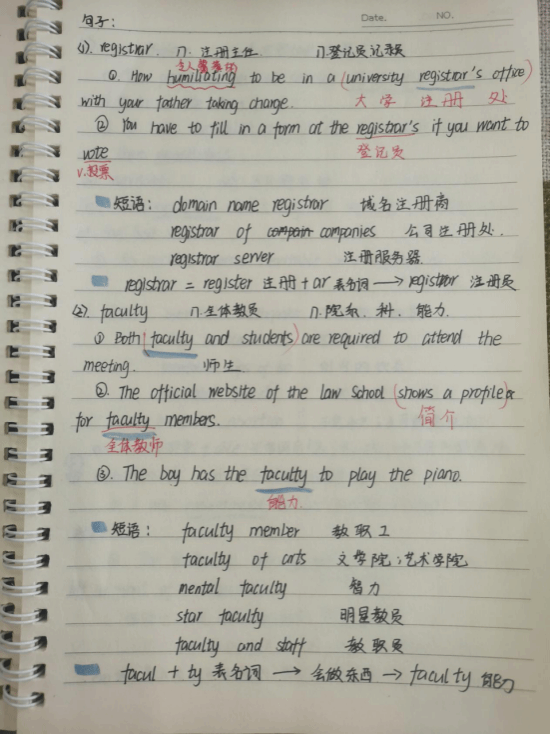 句子：
Date. NO.
(1). registrar n. 注册主任 n.登记员记录员
令人羞辱的
①. How humiliating to be in a (university registrar's office)
with your father taking charge. 大学 注册 处
② You have to fill in a form at the registrar's if you want to
vote 登记员
v.投票
短语： domain name registrar 域名注册商
registrar of companies 公司注册处.
registrar server 注册服务器
registrar = register 注册 + ar 表名词 → registrar 注册员
(2). faculty n.全体教员 n.院系，科，能力.
① Both (faculty and students) are required to attend the
meeting. 师生
②. The official website of the law School (shows a profile)
for faculty members. 简介
全体教师
③. The boy has the faculty to play the piano.
能力.
短语： faculty member 教职工
faculty of arts 文学院；艺术学院
mental faculty 智力
star faculty 明星教员
faculty and staff 教职员
facul + ty 表名词 → 会做东西 → faculty 能力